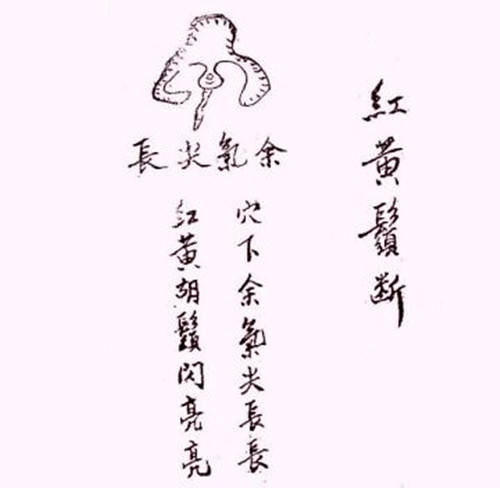 紅黃鬚断
余氣尖長
穴下余氣尖長長
紅黃胡鬚閃亮亮